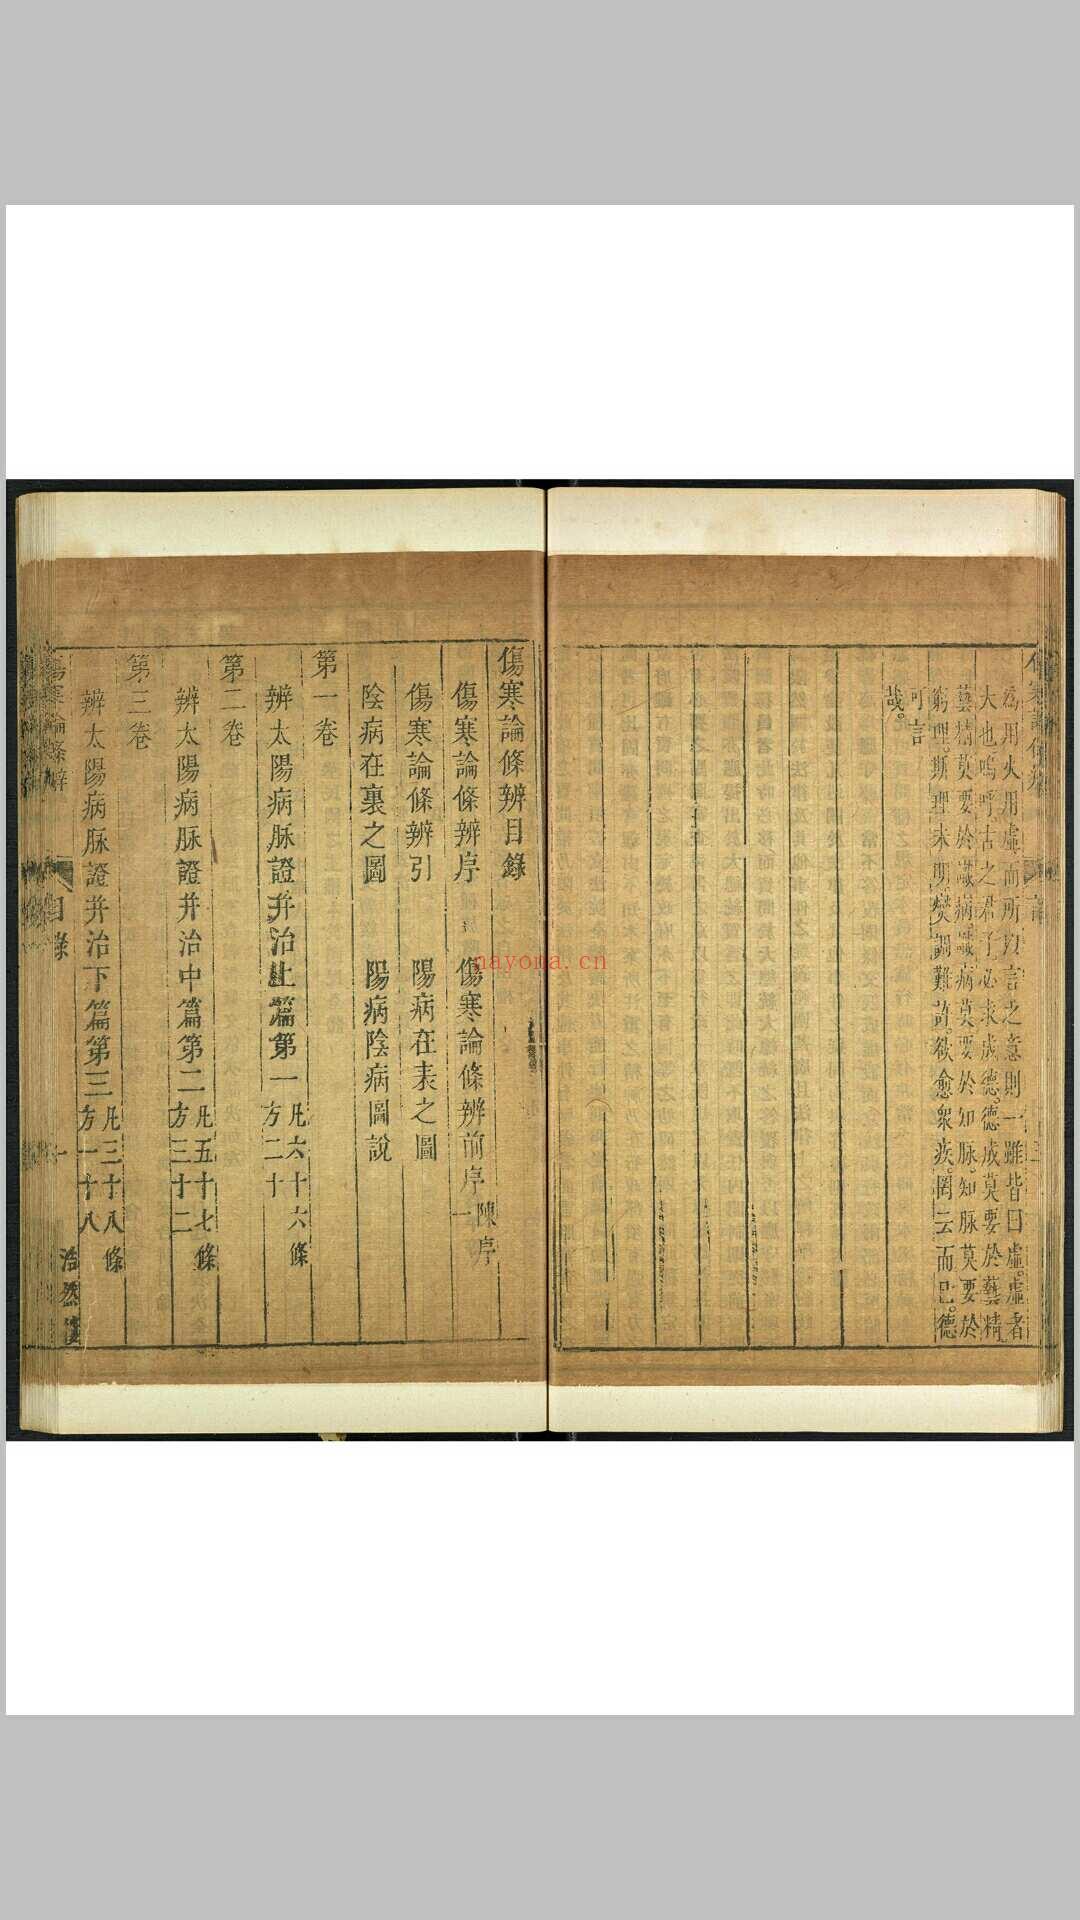 為用火用虛而所以言之意則一雖皆曰虛虛者
大也嗚呼古之君子必求成德德成莫要於藝精
藝精莫要於識病識病莫要於知脉知脉莫要於
窮理斯理未明變調難許欲愈衆疾罔云而已德
可言
哉
傷寒論條辨目錄
傷寒論條辨序 傷寒論條辨前序 陳序一
傷寒論條辨引 陽病在表之圖
陰病在裏之圖 陽病陰病圖說
第一卷
辨太陽病脉證并治上篇第一 凡六十六條 方二十
第二卷
辨太陽病脉證并治中篇第二 凡五十七條 方三十二
第三卷
辨太陽病脉證并治下篇第三 凡三十八條 方一十八
傷寒論條辨 目錄 一 浩然樓
nayona.cn